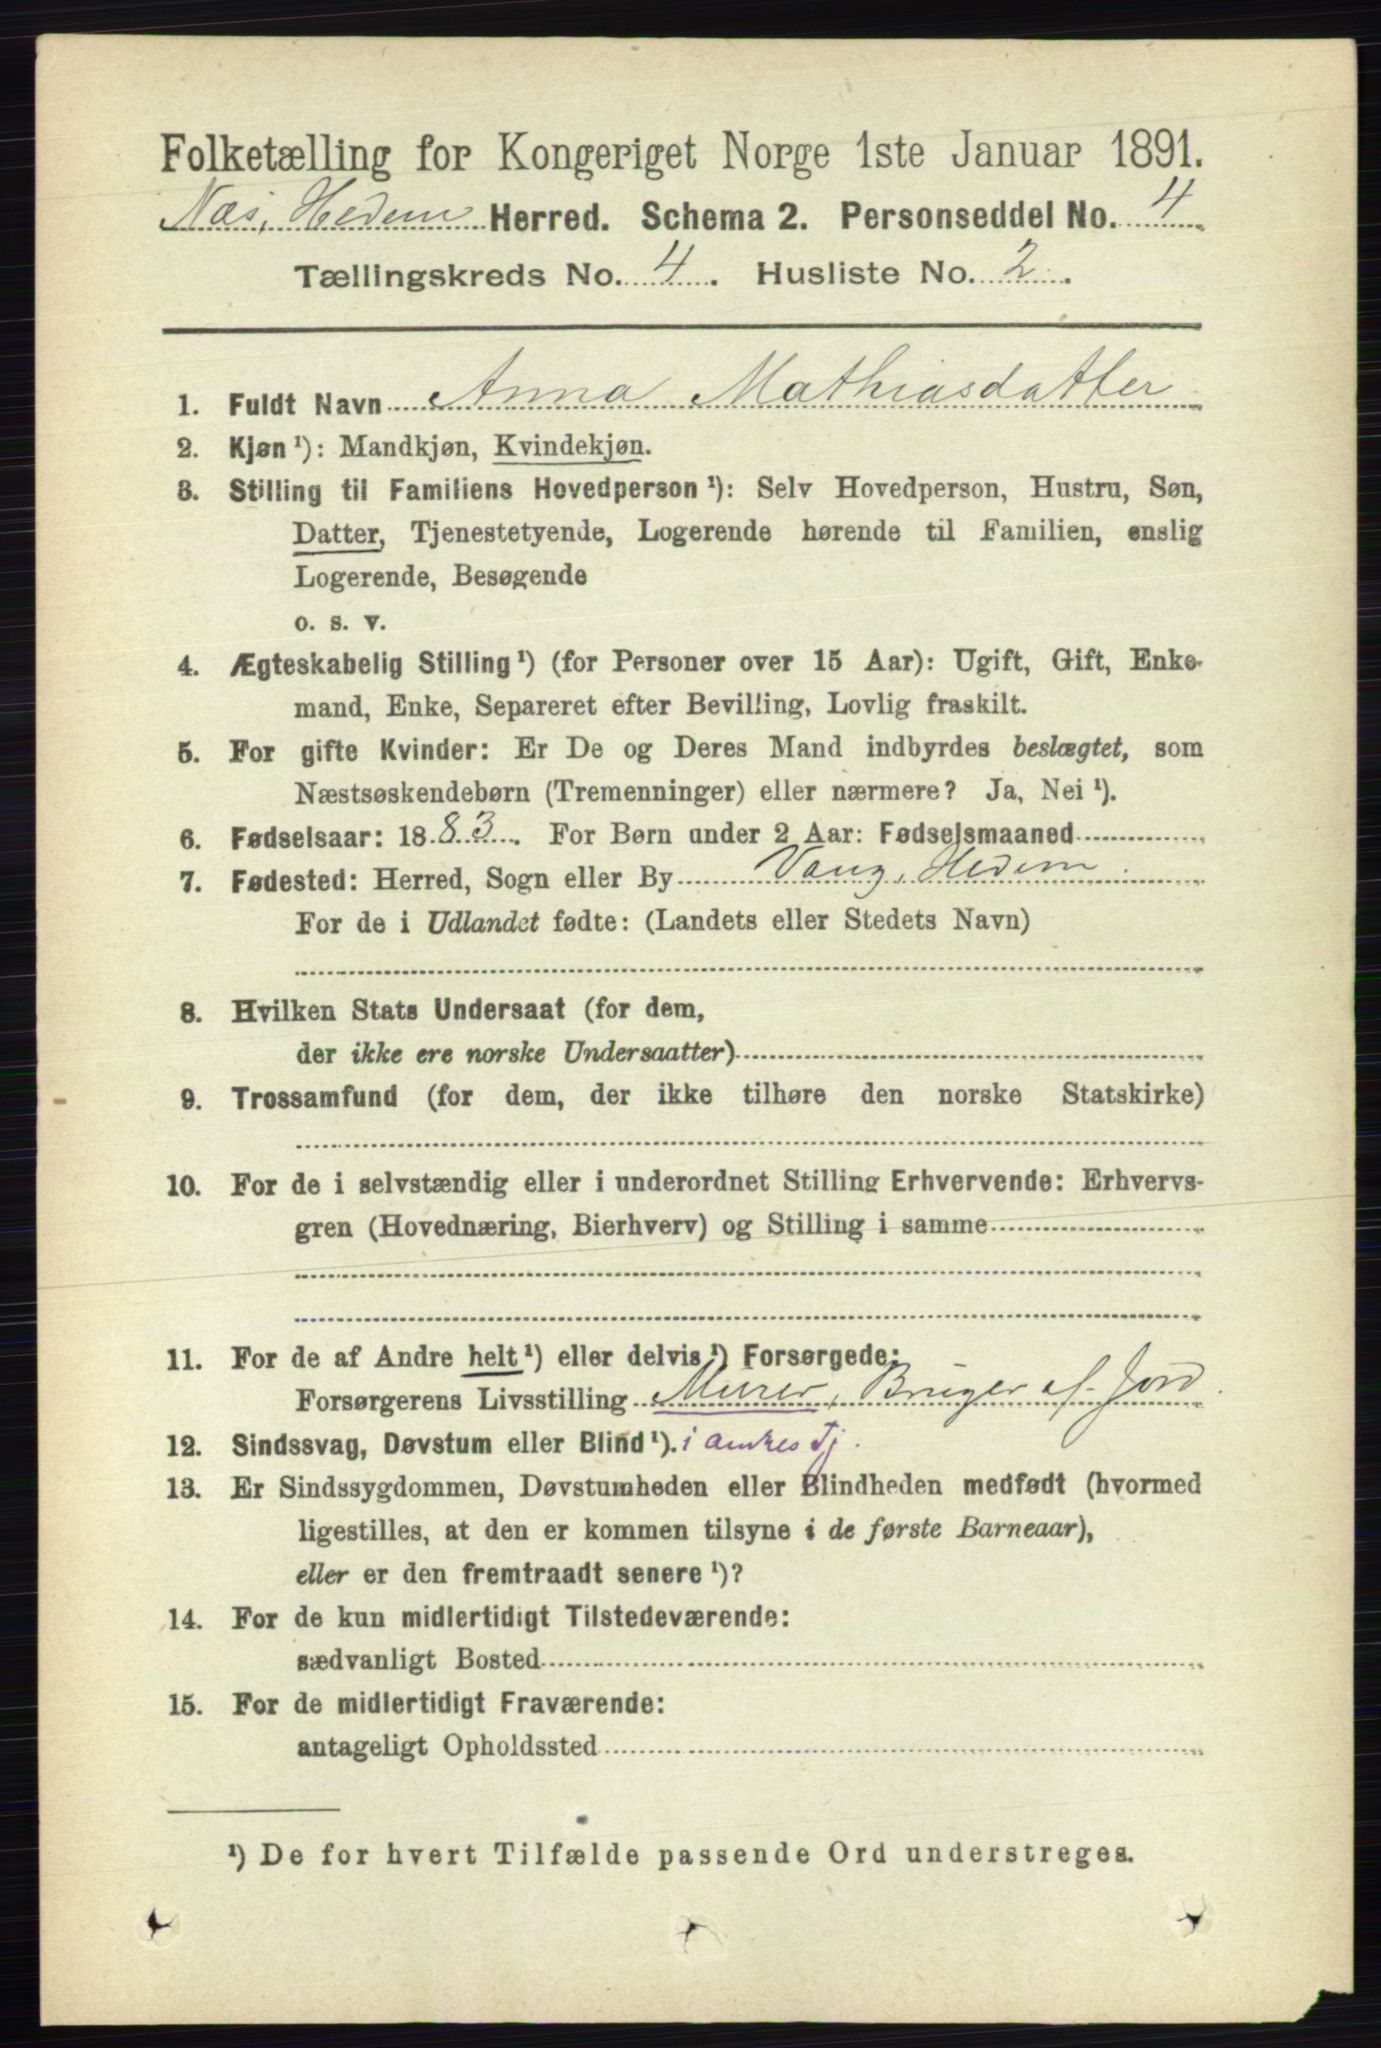 Folketælling for Kongeriget Norge 1ste Januar 1891.
Næs, Hedem Herred. Schema 2. Personseddel No. 4
Tællingskreds No. 4. Husliste No. 2.
1. Fuldt Navn Anna Mathiasdatter
2. Kjøn ¹): Mandkjøn, Kvindekjøn.
3. Stilling til Familiens Hovedperson ¹): Selv Hovedperson, Hustru, Søn,
Datter, Tjenestetyende, Logerende hørende til Familien, enslig
Logerende, Besøgende
o. s. v.
4. Ægteskabelig Stilling ¹) (for Personer over 15 Aar): Ugift, Gift, Enke-
mand, Enke, Separeret efter Bevilling, Lovlig fraskilt.
5. For gifte Kvinder: Er De og Deres Mand indbyrdes beslægtet, som
Næstsøskendebørn (Tremenninger) eller nærmere? Ja, Nei ¹).
6. Fødselsaar: 1883. For Børn under 2 Aar: Fødselsmaaned
7. Fødested: Herred, Sogn eller By Vang, Hedem.
For de i Udlandet fødte: (Landets eller Stedets Navn)
8. Hvilken Stats Undersaat (for dem,
der ikke ere norske Undersaatter)
9. Trossamfund (for dem, der ikke tilhøre den norske Statskirke)
10. For de i selvstændig eller i underordnet Stilling Erhvervende: Erhvervs-
gren (Hovednæring, Bierhverv) og Stilling i samme
11. For de af Andre helt ¹) eller delvis ¹) Forsørgede:
Forsørgerens Livsstilling Murer, Bruger af Jord.
12. Sindssvag, Døvstum eller Blind ¹). i andres Tj.
13. Er Sindssygdommen, Døvstumheden eller Blindheden medfødt (hvormed
ligestilles, at den er kommen tilsyne i de første Barneaar),
eller er den fremtraadt senere ¹)?
14. For de kun midlertidigt Tilstedeværende:
sædvanligt Bosted
15. For de midlertidigt Fraværende:
antageligt Opholdssted
¹) De for hvert Tilfælde passende Ord understreges.